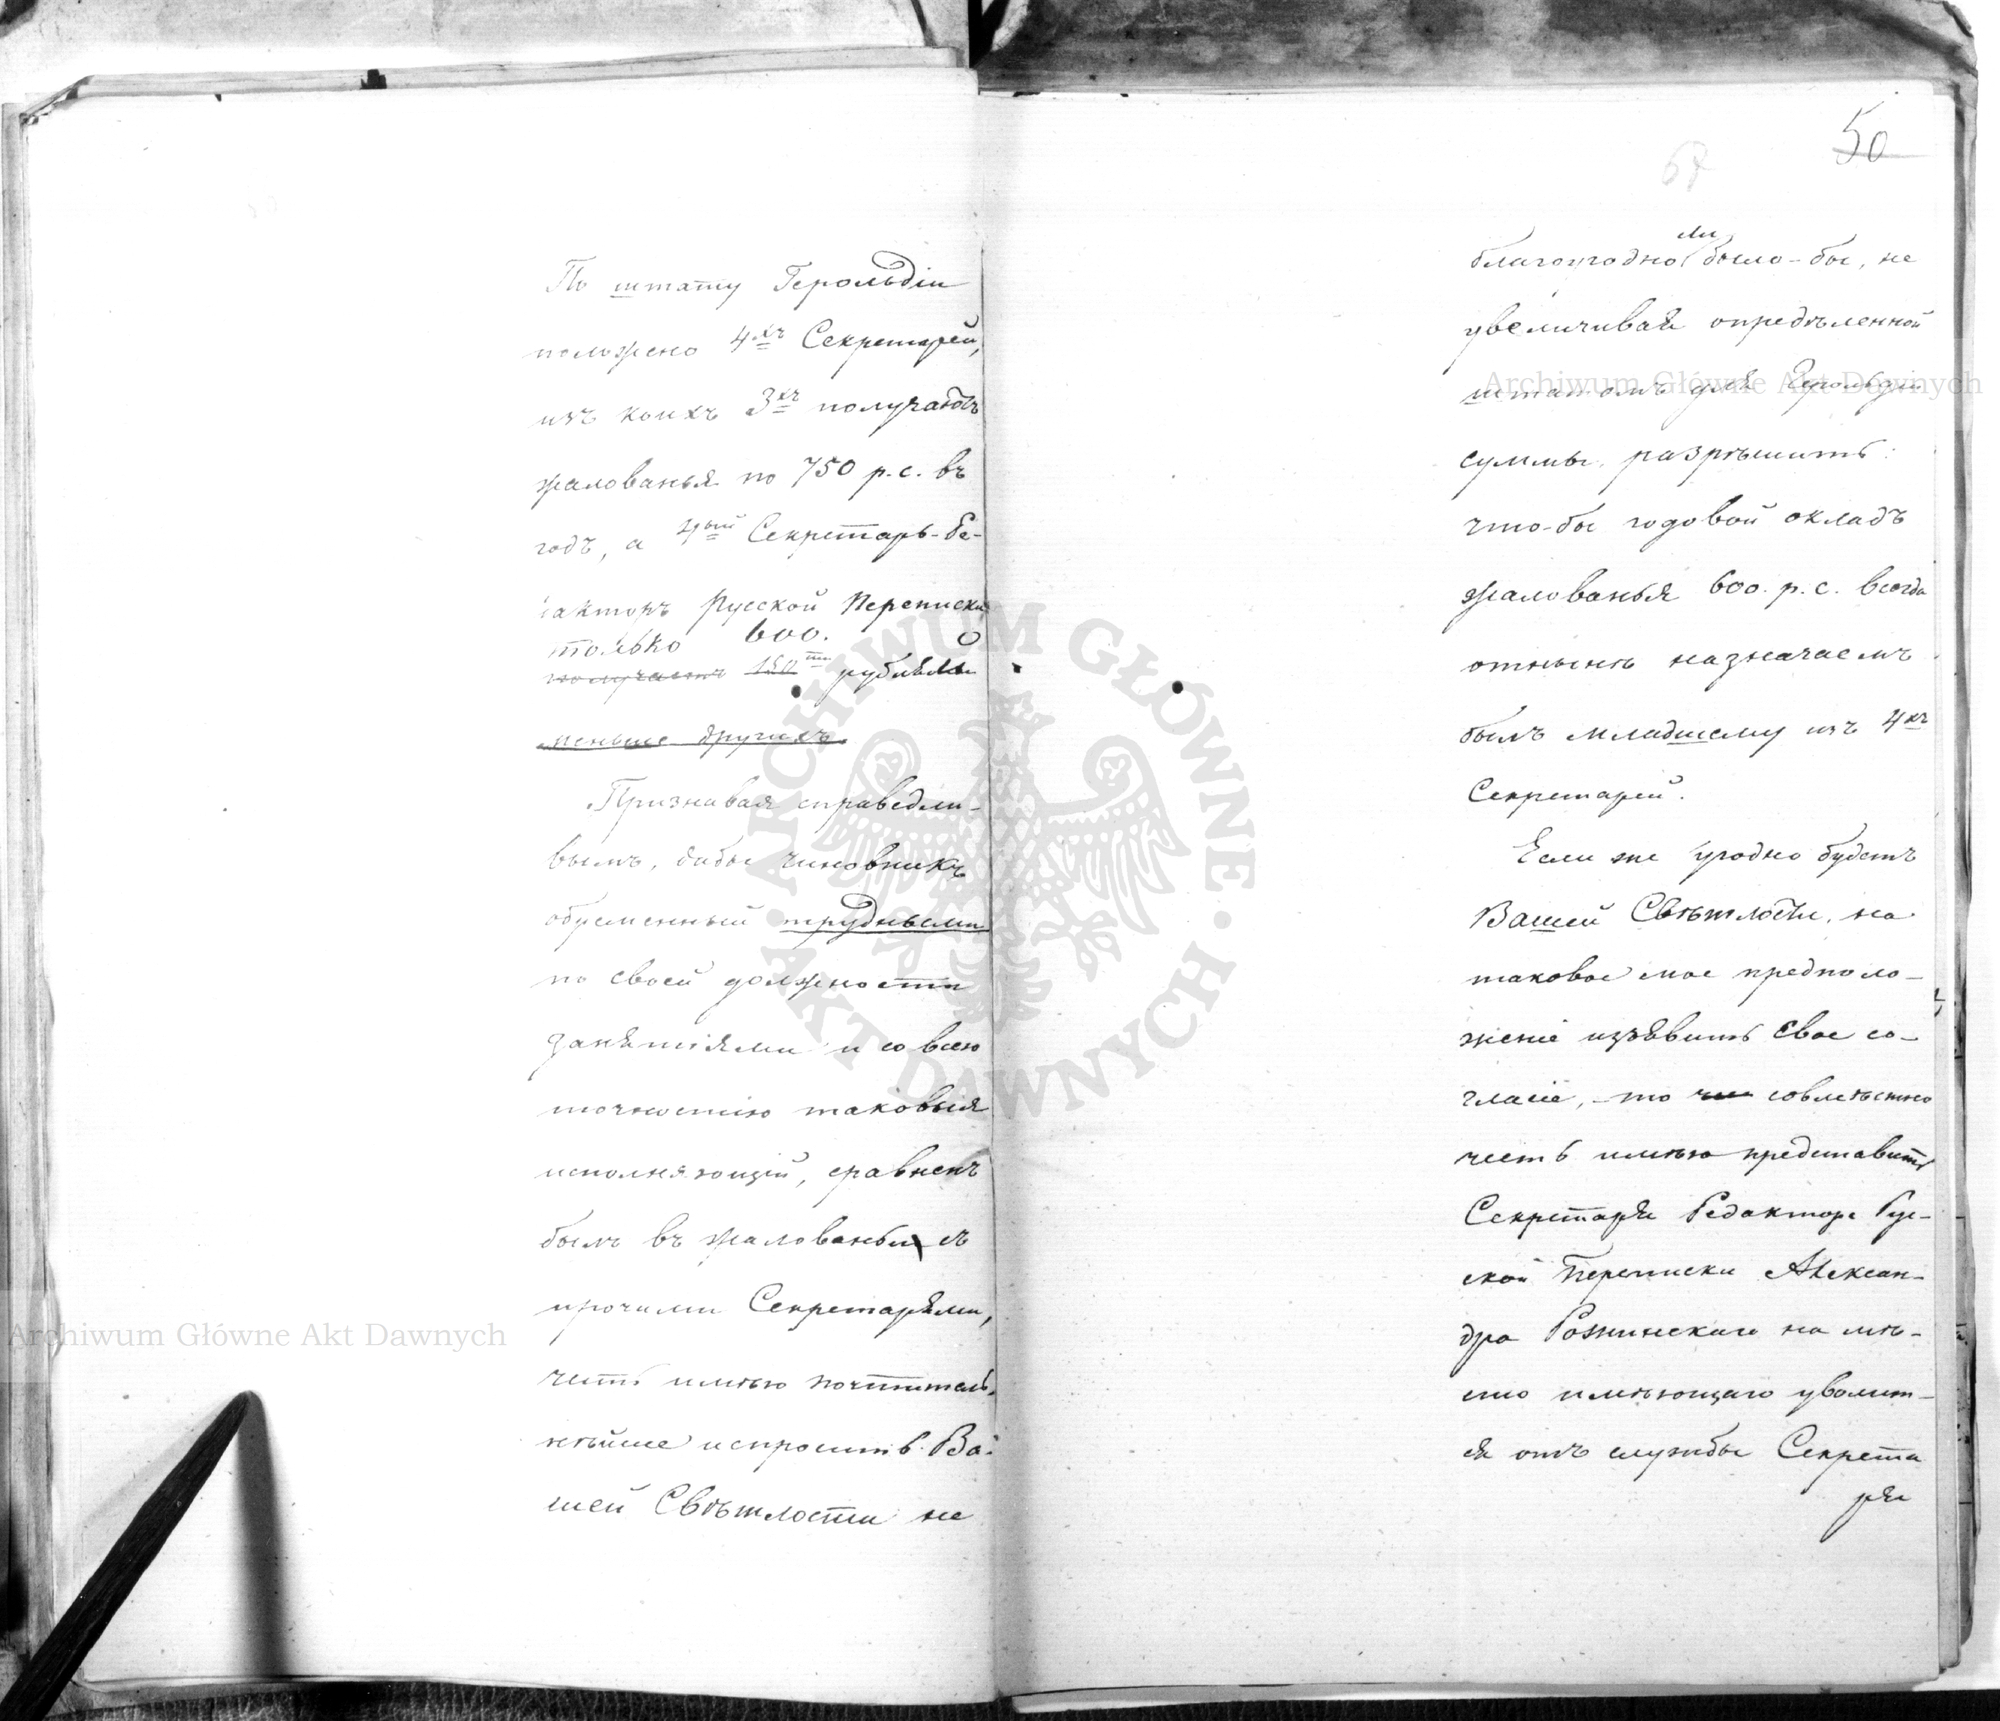 По штату Герольдіи
положено 4хъ Секретарей,
изъ коихъ 3хъ получаютъ
жалованья по 750 р. с. въ
годъ, а 4ый Секретарь-Ре-
дакторъ Русской Переписки
только 600.
получаетъ 150ти рублями
меньше другихъ
Признавая справедли-
вымъ, дабы чиновникъ
обремененный трудными
по своей должности
занятіями и со всею
точностію таковыя
исполняющій, сравненъ
былъ въ жалованьи съ
прочими Секретарями,
честь имѣю почтитель-
нѣйше испросить Ва-
шей Свѣтлости не
50
ли
благоугодно было-бы, не
увеличивая опредѣленной
штатомъ для Герольдіи
суммы, разрѣшить:
что-бы годовой окладъ
жалованья 600. р. с. всегда
отнынѣ назначаемъ
былъ младшему изъ 4хъ
Секретарей.
Если же угодно будетъ
Вашей Свѣтлости, на
таковое мое предполо-
женіе изъявить свое со-
гласіе, то совмѣстно
честь имѣю представить
Секретаря Редактора Рус-
ской Переписки Алексан-
дра на мѣ-
сто имѣющаго уволит-
ся отъ службы Секрета
ря
Archiwum Główne Akt Dawnych
Archiwum Główne Akt Dawnych
ARCHIWUM GŁÓWNE · AKT DAWNYCH ·